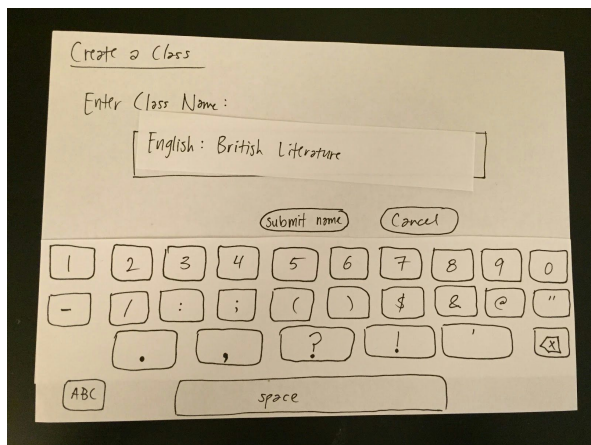 Create a Class
Enter Class Name:
English: British Literature
submit name Cancel
1 2 3 4 5 6 7 8 9 0
- / : ; ( ) $ & @ "
. , ? ! '
ABC space